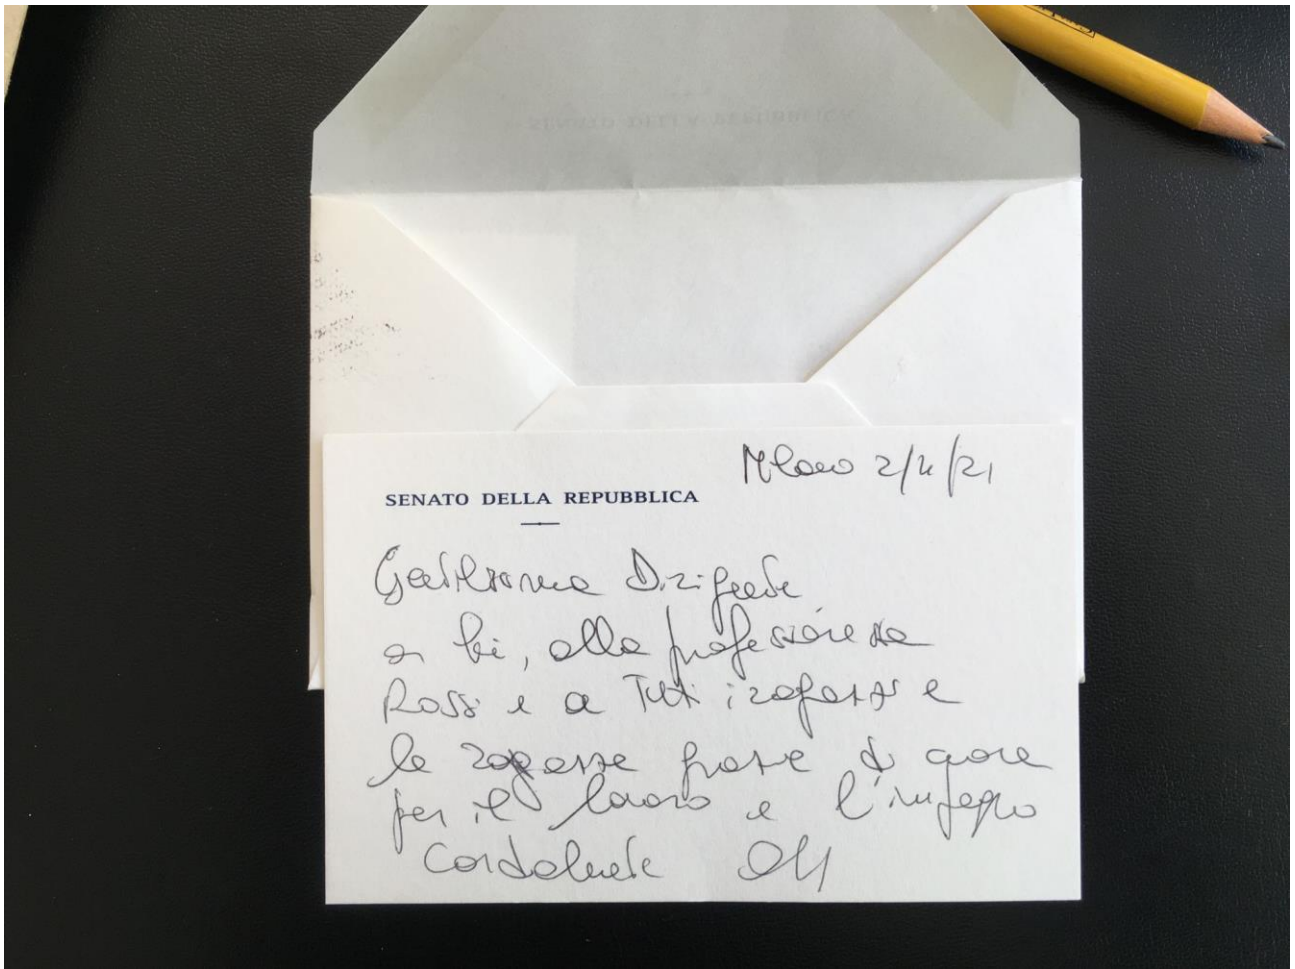 SENATO DELLA REPUBBLICA
Milano 2/4/21
SENATO DELLA REPUBBLICA
Gentilissima Dirigente
a lei, alla professoressa
Rossi e a tutti i ragazzi e
le ragazze grazie di cuore
per il lavoro e l'impegno
Cordialmente